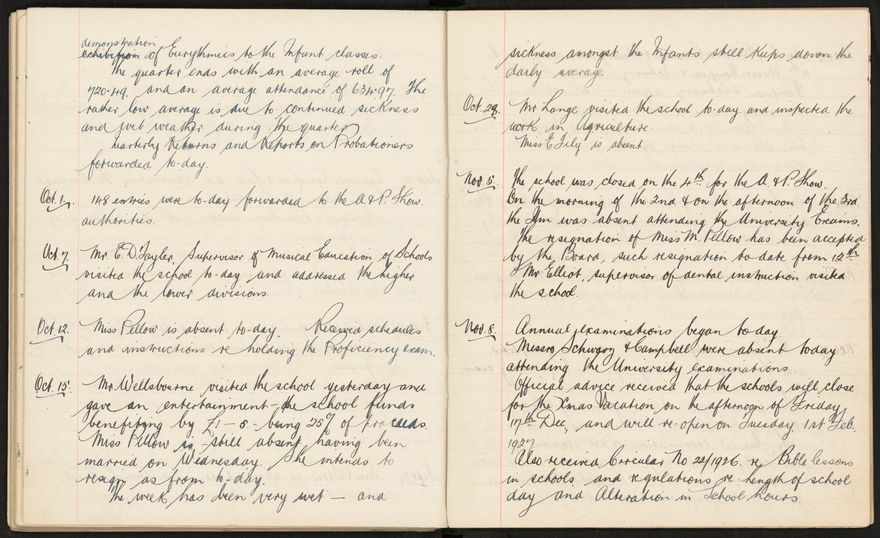 demonstration
exhibition of Eurythmics to the Infant classes.
The quarter ends with an average roll of
720.49, and an average attendance of 634.97. The
rather low average is due to continued sickness
and wet weather during the quarter.
Quarterly Returns and Reports on Probationers
forwarded to-day.
Oct. 1. 148 entries were to-day forwarded to the A & P. Show
authorities.
Oct. 7. Mr. E. D. Tayler, Supervisor of Musical Education of Schools
visited the school to-day and addressed the higher
and the lower divisions.
Oct. 12. Miss Pellow is absent to-day. Received schedules
and instructions re holding the Proficiency exam.
Oct. 15. Mr Wellsbourne visited the school yesterday and
gave an entertainment - the school funds
benefiting by £1-5- being 25% of proceeds.
Miss Pellow is still absent, having been
married on Wednesday. She intends to
resign as from to-day.
The week has been very wet — and
sickness amongst the Infants still keeps down the
daily average.
Oct. 29. Mr Lange visited the school to-day and inspected the
work in Agriculture.
Miss E. Lily is absent.
Nov. 5. The school was closed on the 4th for the A & P. Show.
On the morning of the 2nd & on the afternoon of the 3rd
the was absent attending the University Exams.
The resignation of Miss M. Pellow has been accepted
by the Board, such resignation to date from 12th
Mr Elliot, supervisor of dental instruction visited
the school.
Nov. 8. Annual examinations began to-day
Messrs Schwarz & Campbell were absent to-day
attending the University examinations
Official advice received that the schools will close
for the Xmas Vacation on the afternoon of Friday
17th Dec, and will re-open on Tuesday 1st Feb.
1927
Also received Circular No 22/1926. re Bible lessons
in schools and regulations re length of school
day and Alteration in School hours